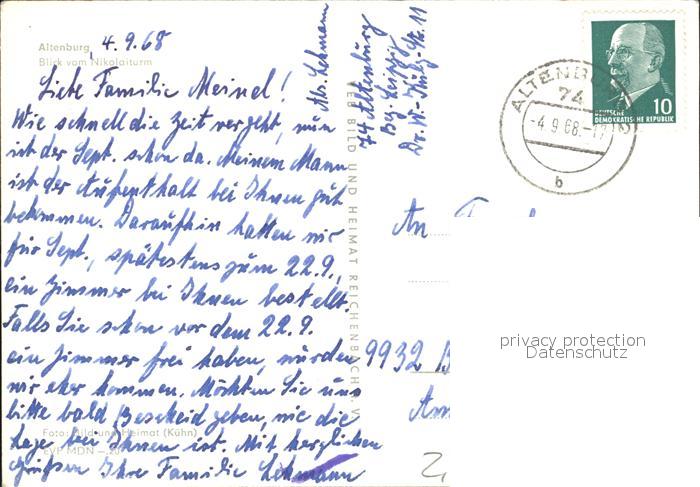 Altenburg
Blick vom Nikolaiturm
4.9.68
Liebe Familie Meinel!
Wie schnell die Zeit vergeht, nun
ist der Sept. schon da. Meinem Mann
ist der Aufenthalt bei Ihnen gut
bekommen. Daraufhin hatten wir
für Sept., spätestens zum 22.9.,
ein Zimmer bei Ihnen bestellt.
Falls Sie schon vor dem 22.9.
ein Zimmer frei haben, würden
wir eher kommen. Möchten Sie uns
bitte bald Bescheid geben, wie die
Lage bei Ihnen ist. Mit herzlichen
Grüßen Ihre Familie Lehmann
Foto: Bild und Heimat (Kühn)
EVP MDN –,20
VEB BILD UND HEIMAT REICHENBACH i. V.
Abs. Lehmann
74 Altenburg
Bez. Leipzig
Dr.-W.-Külz-Str. 11
ALTENBURG
74
-4.9.68.-17
b
10
DEUTSCHE
DEMOKRATISCHE REPUBLIK
An
9932
privacy protection
Datenschutz